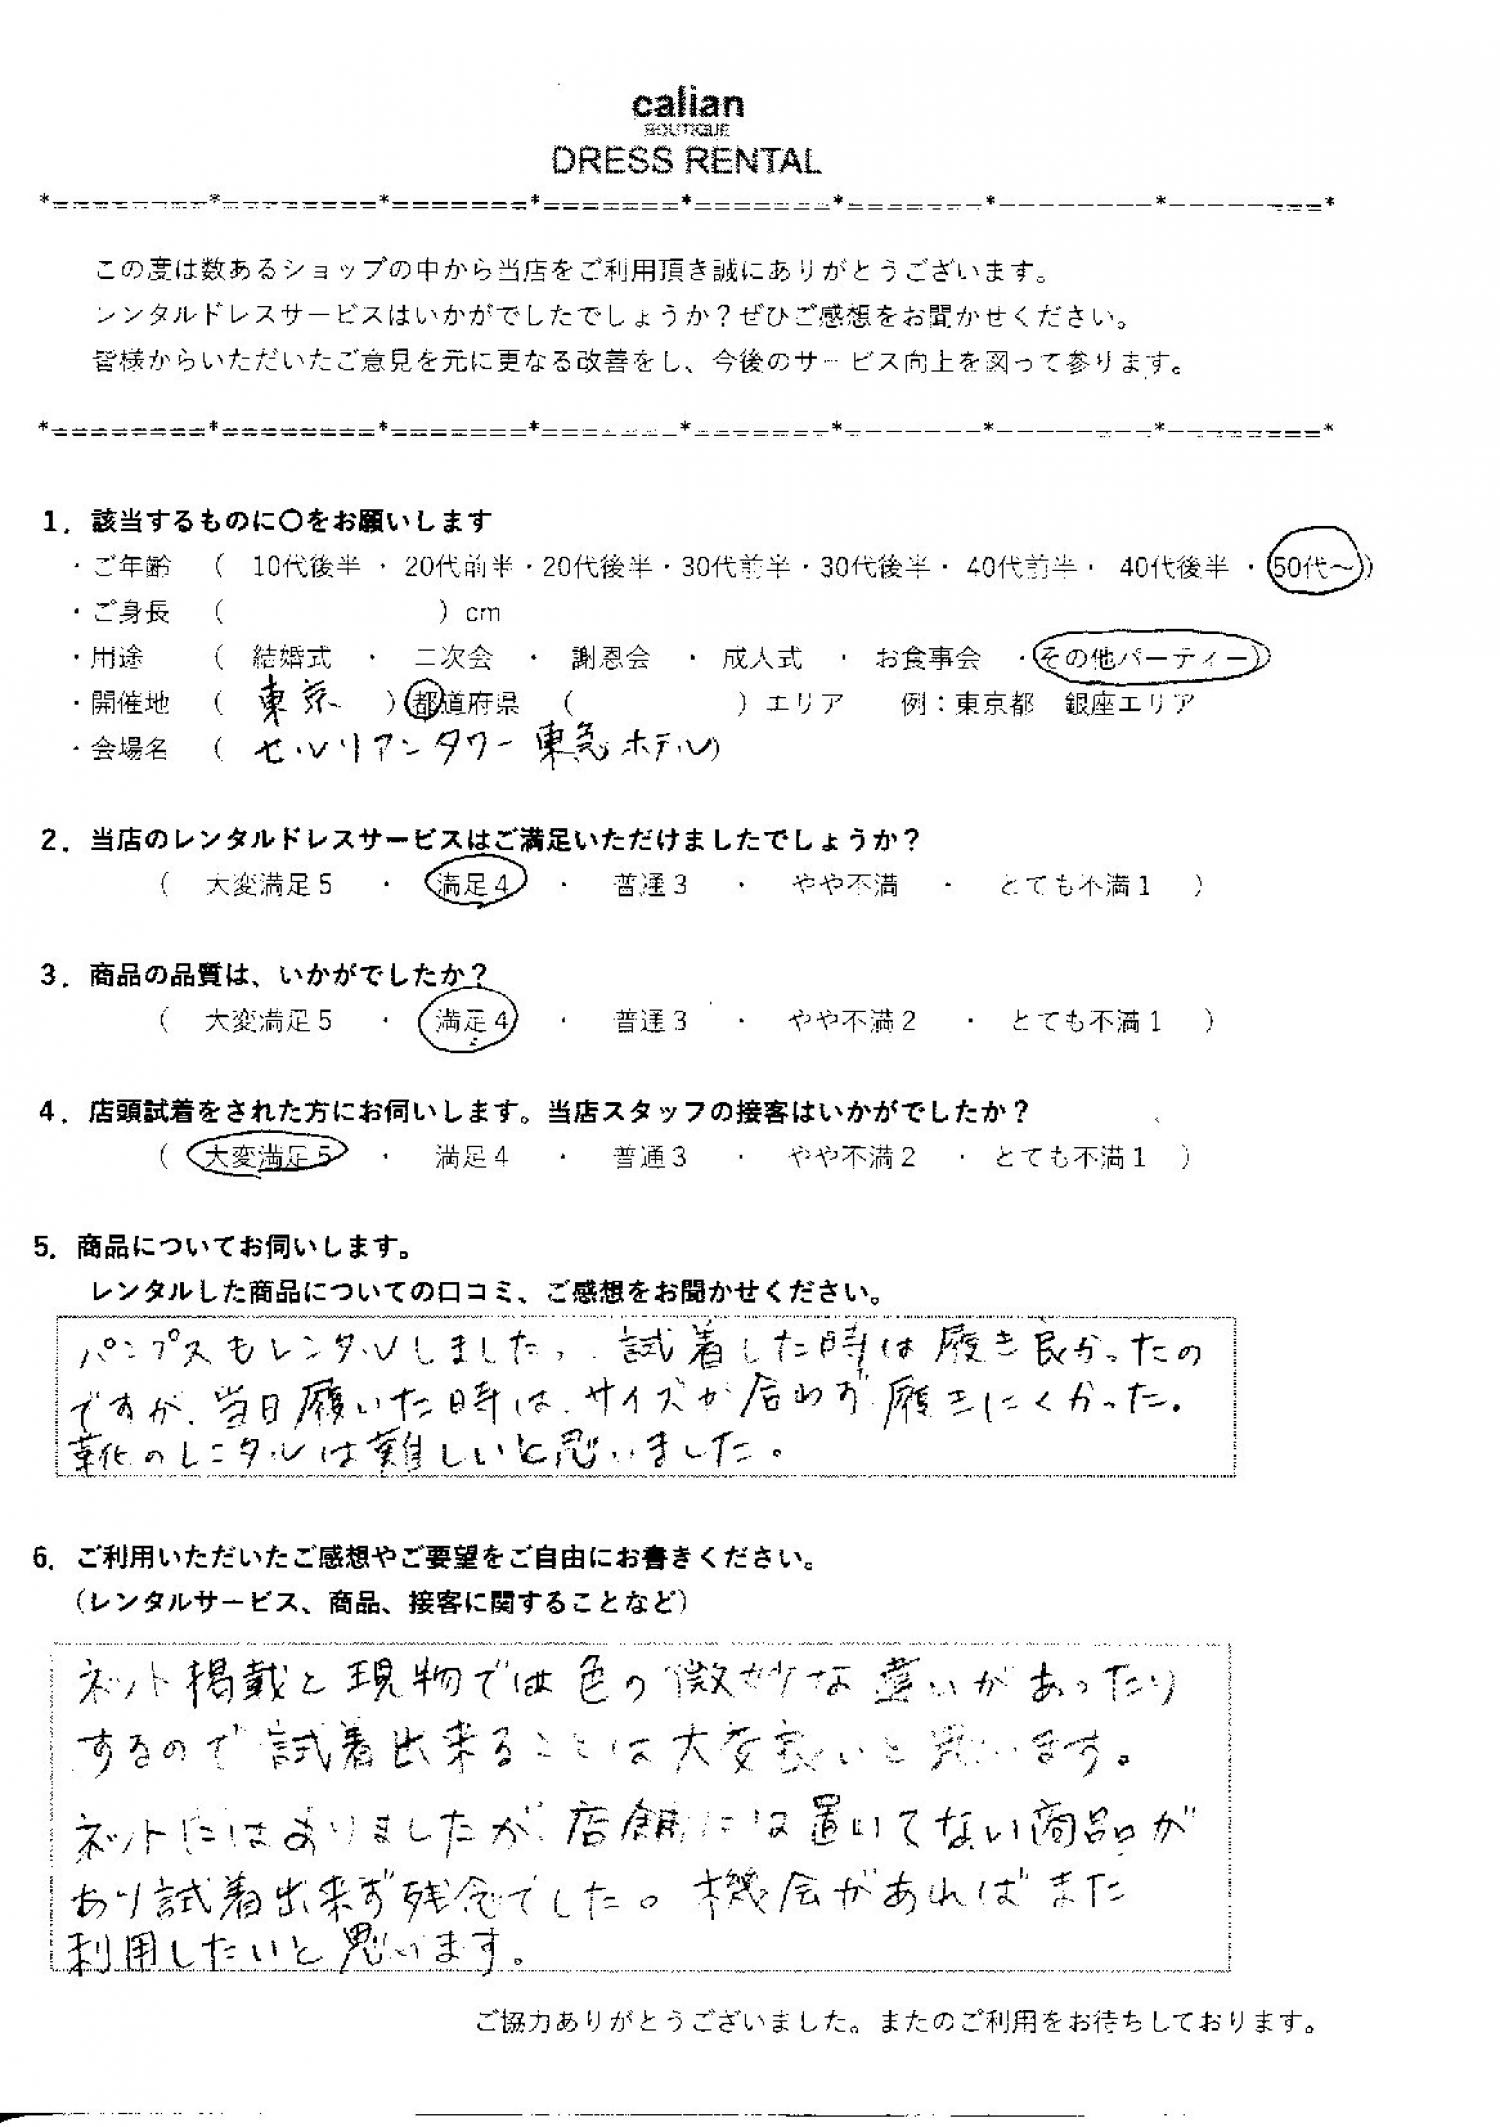 calian
BOUTIQUE
DRESS RENTAL
*=========*=========*========*========*========*========*=========*=========*
この度は数あるショップの中から当店をご利用頂き誠にありがとうございます。
レンタルドレスサービスはいかがでしたでしょうか？ぜひご感想をお聞かせください。
皆様からいただいたご意見を元に更なる改善をし、今後のサービス向上を図って参ります。
*=========*=========*========*========*========*========*=========*=========*
1．該当するものに〇をお願いします
・ご年齢　（　10代後半 ・ 20代前半・20代後半・30代前半・30代後半・ 40代前半・ 40代後半 ・ 50代～）
・ご身長　（　　　　　　　　）cm
・用途　　（　結婚式　・　二次会　・　謝恩会　・　成人式　・　お食事会　・その他パーティー）
・開催地　（　東京　）都道府県　（　　　　　　）エリア　　例：東京都　銀座エリア
・会場名　（　セルリアンタワー東急ホテル）
2．当店のレンタルドレスサービスはご満足いただけましたでしょうか？
（　大変満足５　・　満足４　・　普通３　・　やや不満　・　とても不満１　）
3．商品の品質は、いかがでしたか？
（　大変満足５　・　満足４　・　普通３　・　やや不満２　・　とても不満１　）
4．店頭試着をされた方にお伺いします。当店スタッフの接客はいかがでしたか？
（　大変満足５　・　満足４　・　普通３　・　やや不満２　・　とても不満１　）
5．商品についてお伺いします。
レンタルした商品についての口コミ、ご感想をお聞かせください。
パンプスもレンタルしました。試着した時は履き良かったの
ですが、当日履いた時は、サイズが合わず履きにくかった。
靴のレンタルは難しいと思いました。
6．ご利用いただいたご感想やご要望をご自由にお書きください。
（レンタルサービス、商品、接客に関することなど）
ネット掲載と現物では色の微妙な違いがあったり
するので試着出来ることは大変良いと思います。
ネットにはありましたが、店舗には置いてない商品が
あり試着出来ず残念でした。機会があればまた
利用したいと思います。
ご協力ありがとうございました。またのご利用をお待ちしております。